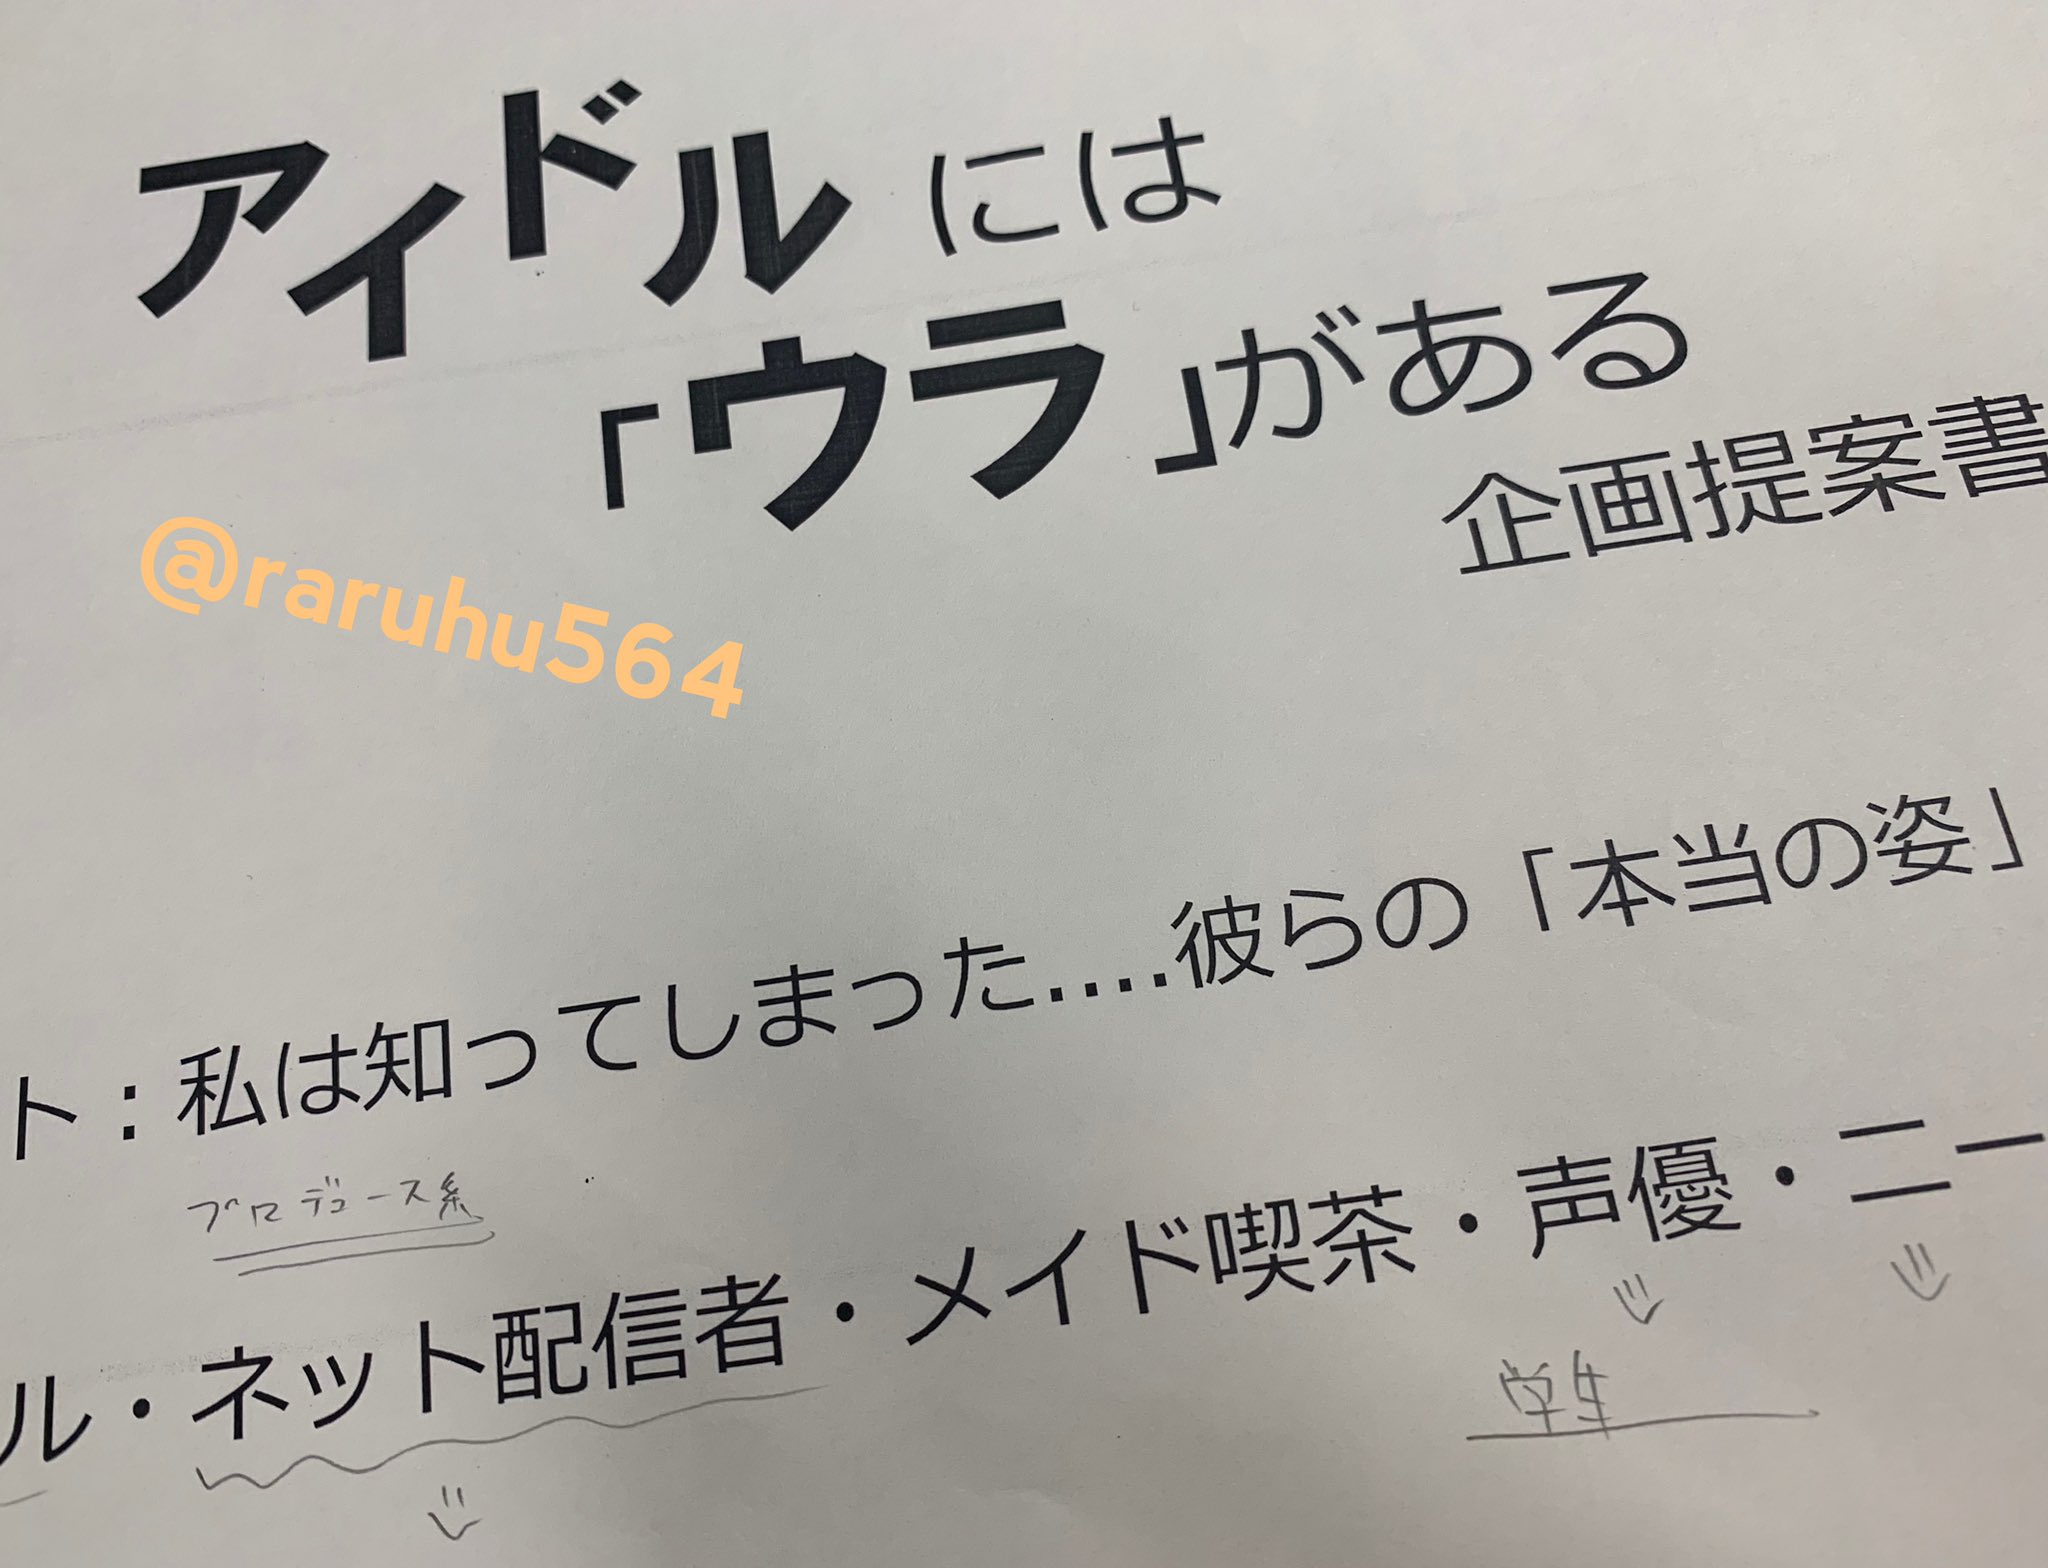 アイドルには
「ウラ」がある
企画提案書
@raruhu564
ト：私は知ってしまった....彼らの「本当の姿」
プロデュース系
ル・ネット配信者・メイド喫茶・声優・ニー
学生